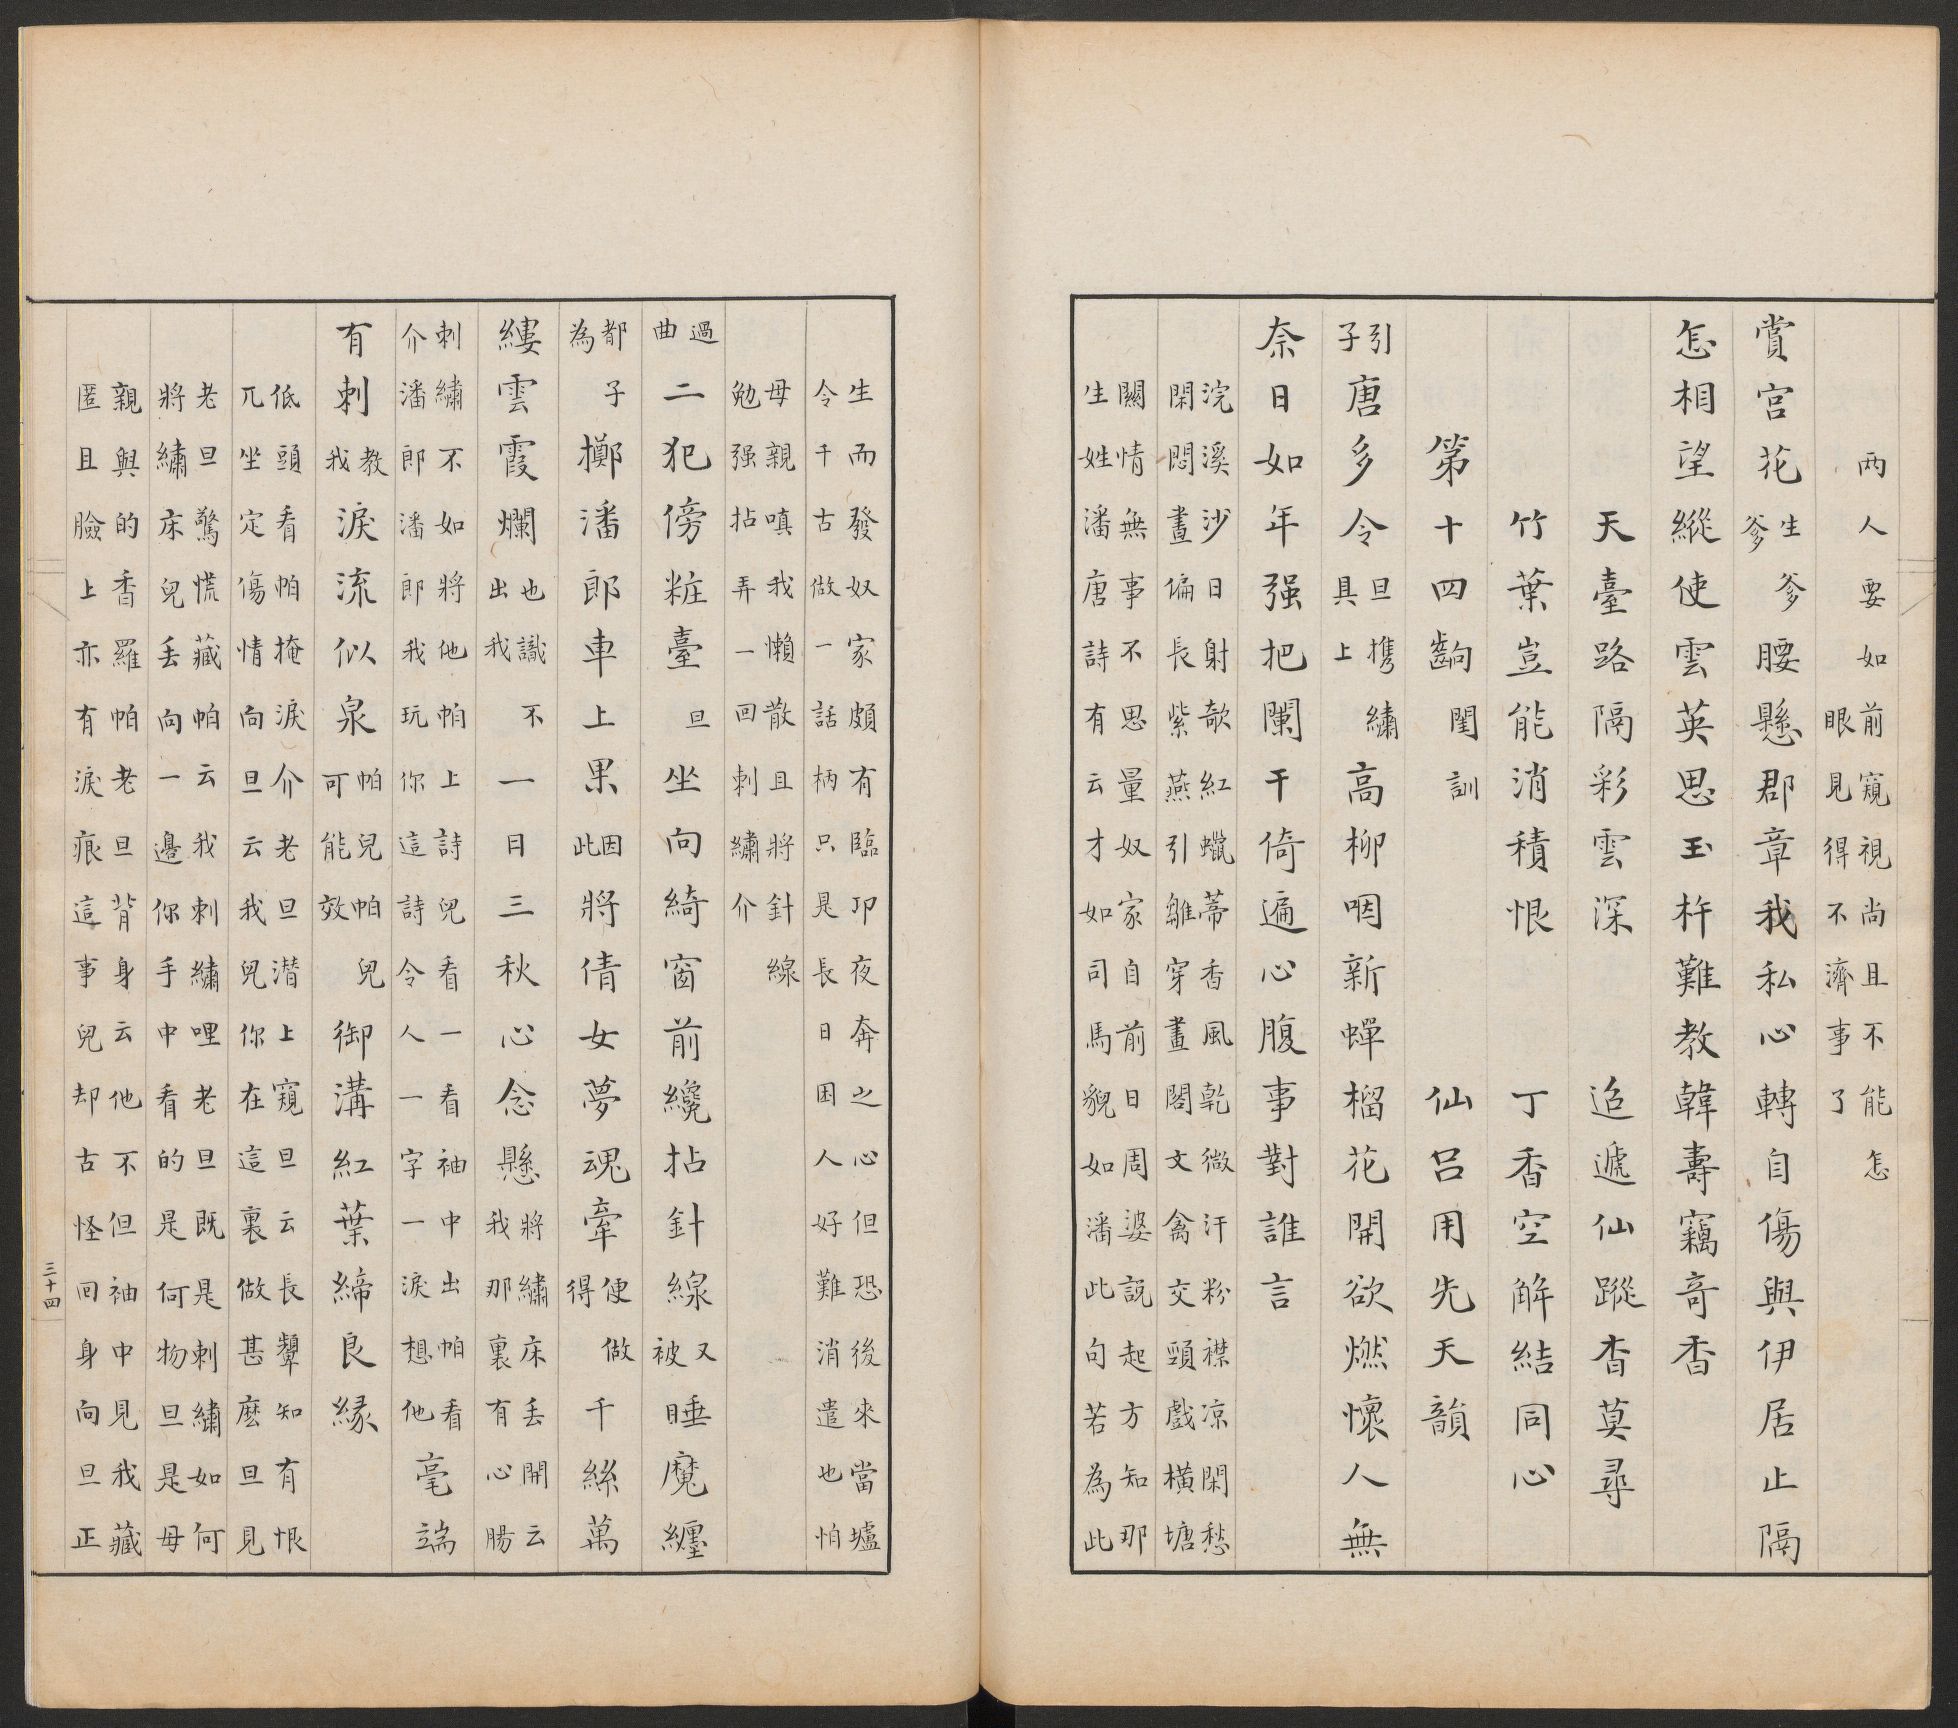 两人要如前窺視尚且不能怎
眼見得不濟事了
賞宮花生爹爹腰懸郡章我私心轉自傷與伊居止隔
怎相望縱使雲英思玉杵難教韓壽竊奇香
天臺路隔彩雲深　迢遞仙蹤杳莫尋
竹葉豈能消積恨　丁香空解結同心
第十四齣　閨訓　仙呂用先天韻
引子唐多令旦携繡具上高柳咽新蟬榴花開欲燃懷人無
奈日如年强把闌干倚遍心腹事對誰言
浣溪沙日射欹紅蠟蒂香風乾微汗粉襟凉閑愁
閑悶晝偏長紫燕引雛穿畫閣文禽交頸戲橫塘
關情無事不思量奴家自前日周婆說起方知那
生姓潘唐詩有云才如司馬貌如潘此句若為此
生而發奴家頗有臨卭夜奔之心但恐後來當壚
令千古做一話柄只是長日困人好難消遣也怕
母親嗔我懶散且將針線
勉强拈弄一回刺繡介
過曲二犯傍粧臺旦坐向綺窗前纔拈針線又被睡魔纏
都為子擲潘郎車上果因此將倩女夢魂牽便做得千絲萬
縷雲霞爛也識不出我一日三秋心念懸將繡床丢開云我那裏有心腸
刺繡不如將他帕上詩兒看一看袖中出帕看
介潘郎潘郎我玩你這詩令人一字一淚想他毫端
有刺教我淚流似泉帕兒帕兒可能效御溝紅葉締良緣
低頭看帕掩淚介老旦潛上窺旦云長顰知有恨
兀坐定傷情向旦云我兒你在這裏做甚麽旦見
老旦驚慌藏帕云我刺繡哩老旦既是刺繡如何
將繡床兒丢向一邊你手中看的是何物旦是母
親與的香羅帕老旦背身云他不但袖中見我藏
匿且臉上亦有淚痕這事兒却古怪回身向旦正
三十四